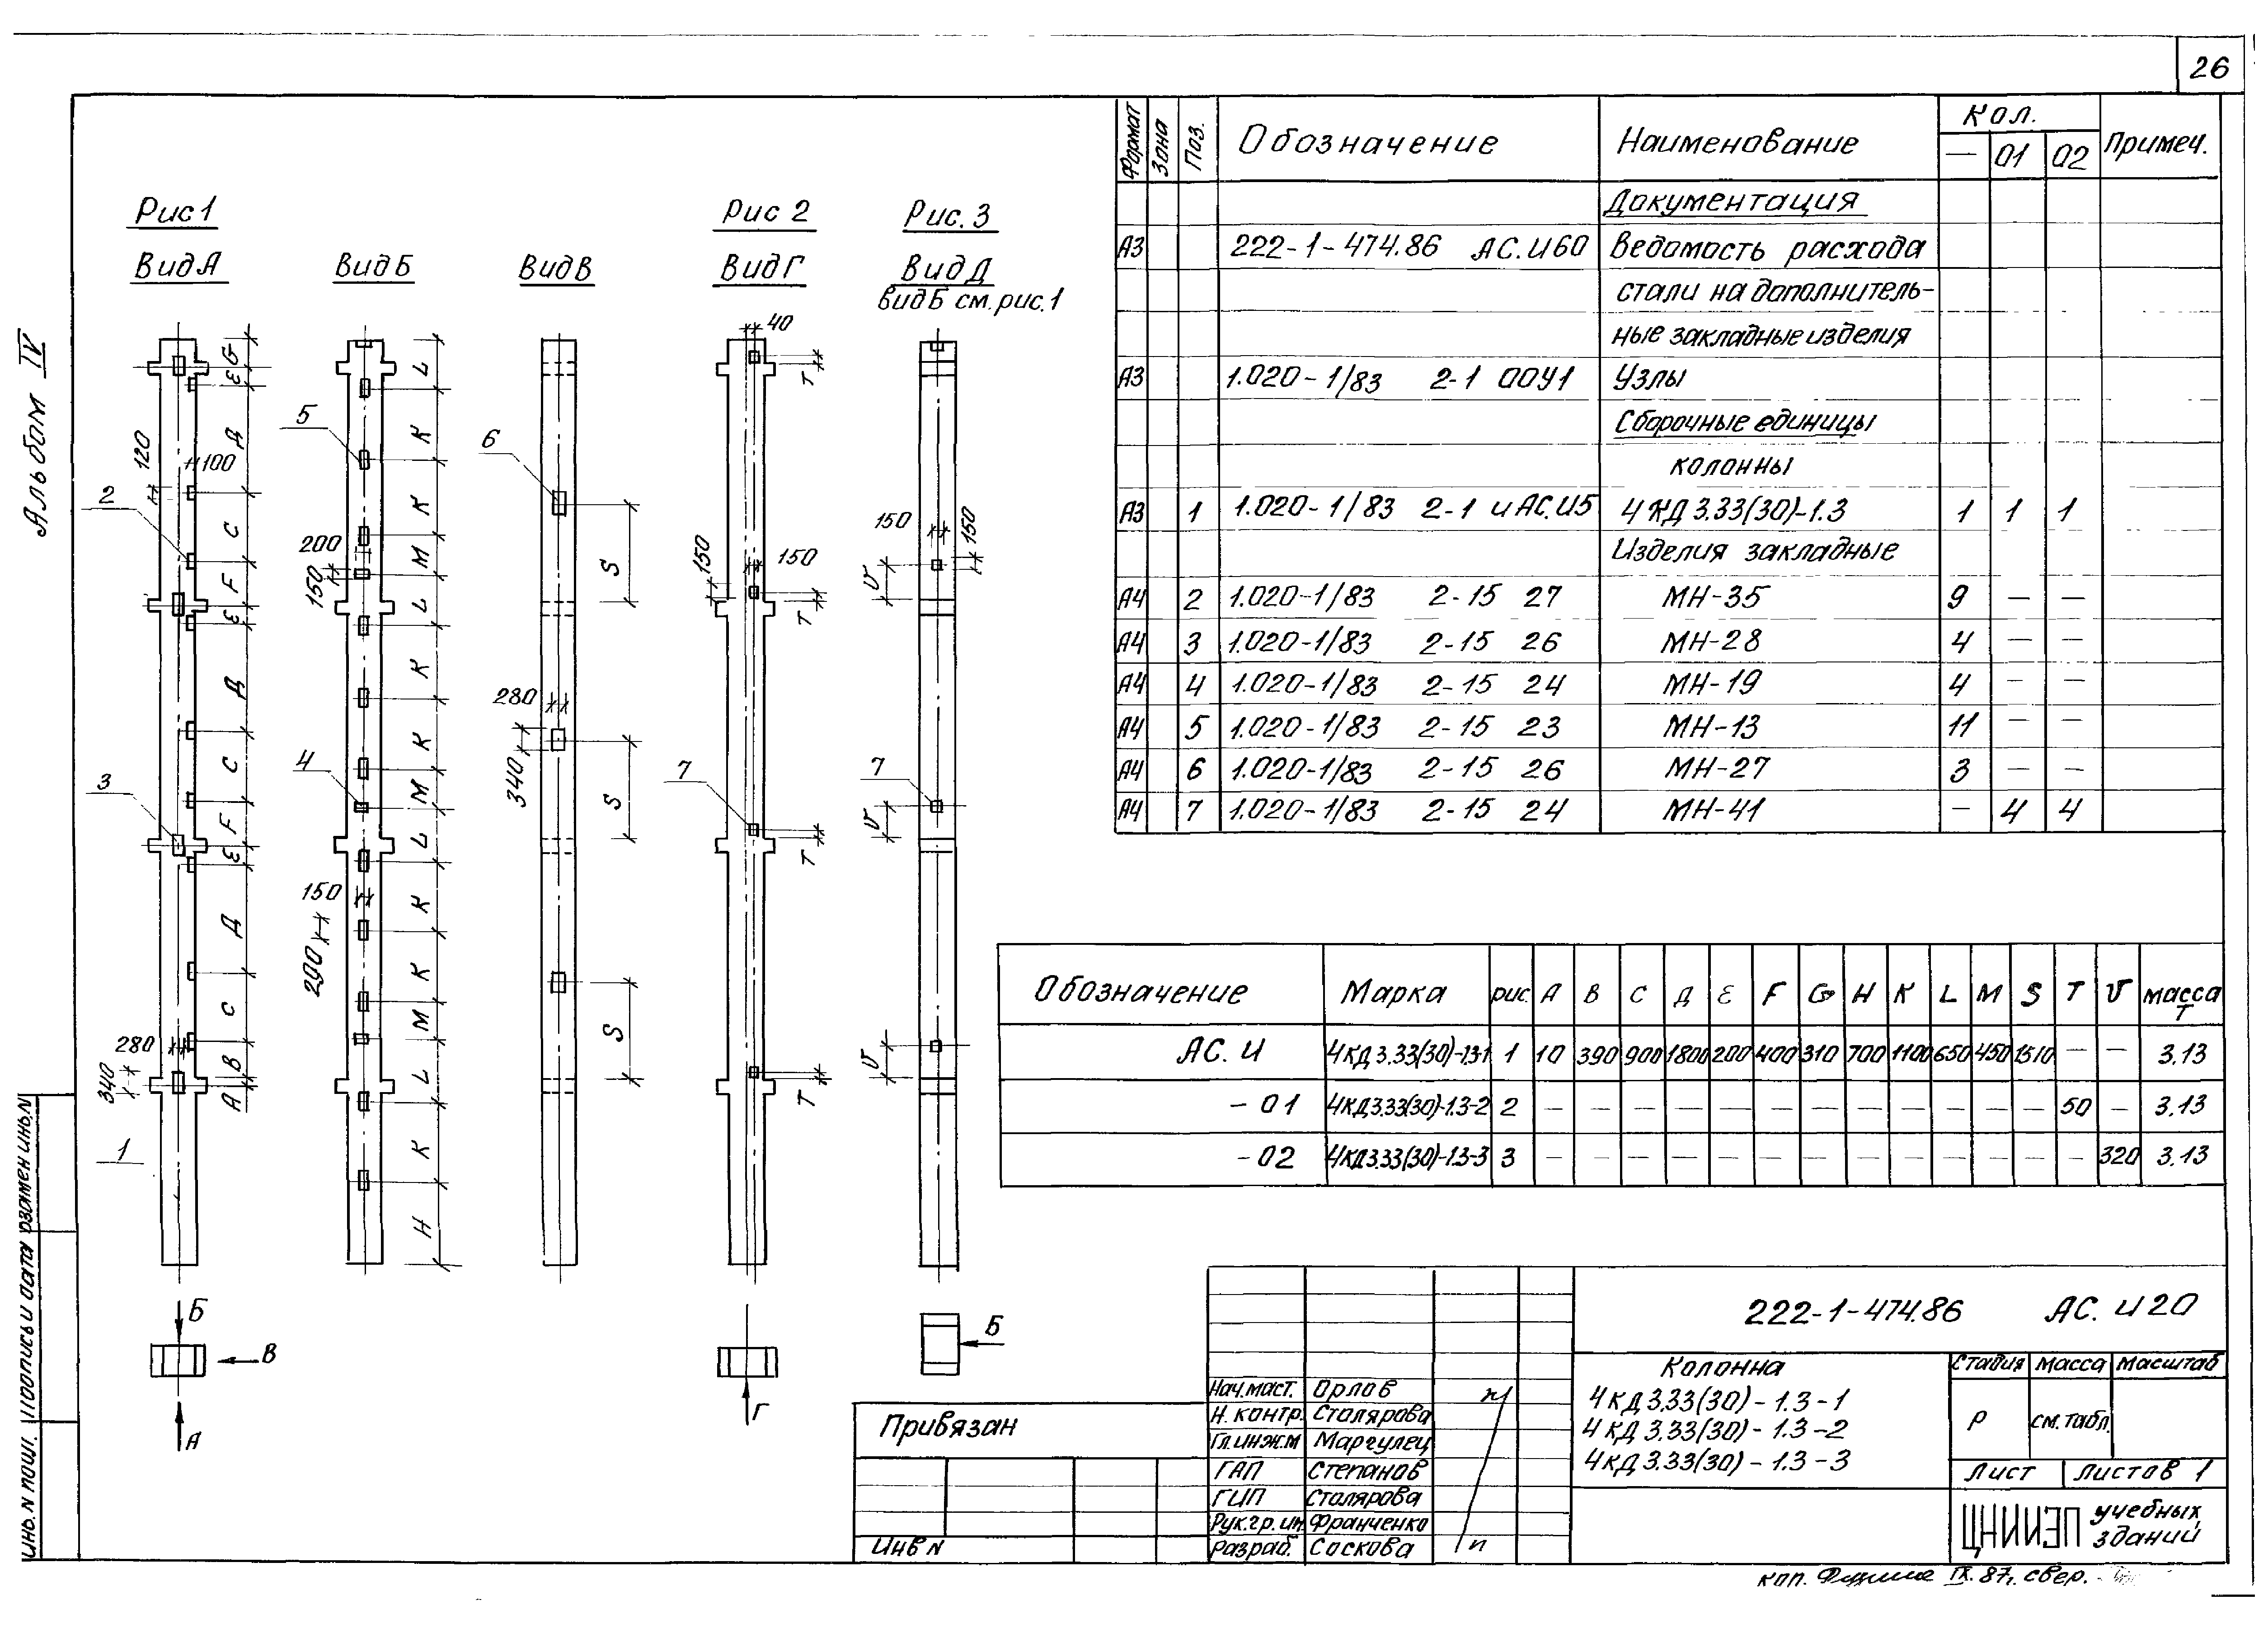 26
Альбом IV
Рис1
Рис 2
Рис. 3
Вид А
Вид Б
Вид В
Вид Г
Вид Д
вид Б см. рис. 1
G
Е
Д
С
F
Е
Д
С
F
Е
Д
С
В
А
120
100
2
3
280
340
1
L
K
K
M
L
K
K
M
L
K
K
M
L
K
H
5
200
150
4
150
200
6
S
280
340
S
S
40
T
150
150
T
7
T
T
150
150
V
7
V
V
Б
В
А
Г
Б
Формат
Зона
Поз.
Обозначение
Наименование
Кол.
Примеч.
— 01 02
Документация
А3 222-1-474.86 АС.И60 Ведомость расхода
стали на дополнитель-
ные закладные изделия
А3 1.020-1/83 2-1 00У1 Узлы
Сборочные единицы
колонны
А3 1 1.020-1/83 2-1 и АС.И5 4КД 3.33(30)-1.3 1 1 1
Изделия закладные
А4 2 1.020-1/83 2-15 27 МН-35 9 — —
А4 3 1.020-1/83 2-15 26 МН-28 4 — —
А4 4 1.020-1/83 2-15 24 МН-19 4 — —
А4 5 1.020-1/83 2-15 23 МН-13 11 — —
А4 6 1.020-1/83 2-15 26 МН-27 3 — —
А4 7 1.020-1/83 2-15 24 МН-41 — 4 4
Обозначение Марка рис. А В С Д Е F G Н К L М S Т V масса т
АС. И 4КД 3.33(30)-1.3-1 1 10 390 900 1800 200 400 310 700 1100 650 450 1510 — — 3.13
-01 4КД3.33(30)-1.3-2 2 — — — — — — — — — — — — 50 — 3.13
-02 4КД3.33(30)-1.3-3 3 — — — — — — — — — — — — — 320 3.13
222-1-474.86 АС. И 20
Колонна
4КД 3.33(30) - 1.3 - 1
4КД 3.33(30) - 1.3 - 2
4КД 3.33(30) - 1.3 - 3
Стадия Масса Масштаб
Р см. табл.
Лист Листов 1
ЦНИИЭП учебных
зданий
Нач.маст. Орлов
Н. контр. Столярова
Гл.инж.м Маргулец
ГАП Степанов
ГИП Столярова
Рук.гр.ин. Франченко
Разраб. Соскова
Привязан
Инв N
Инв. N подл.
Подпись и дата
Взамен инв. N
коп. IX. 87г. свер.